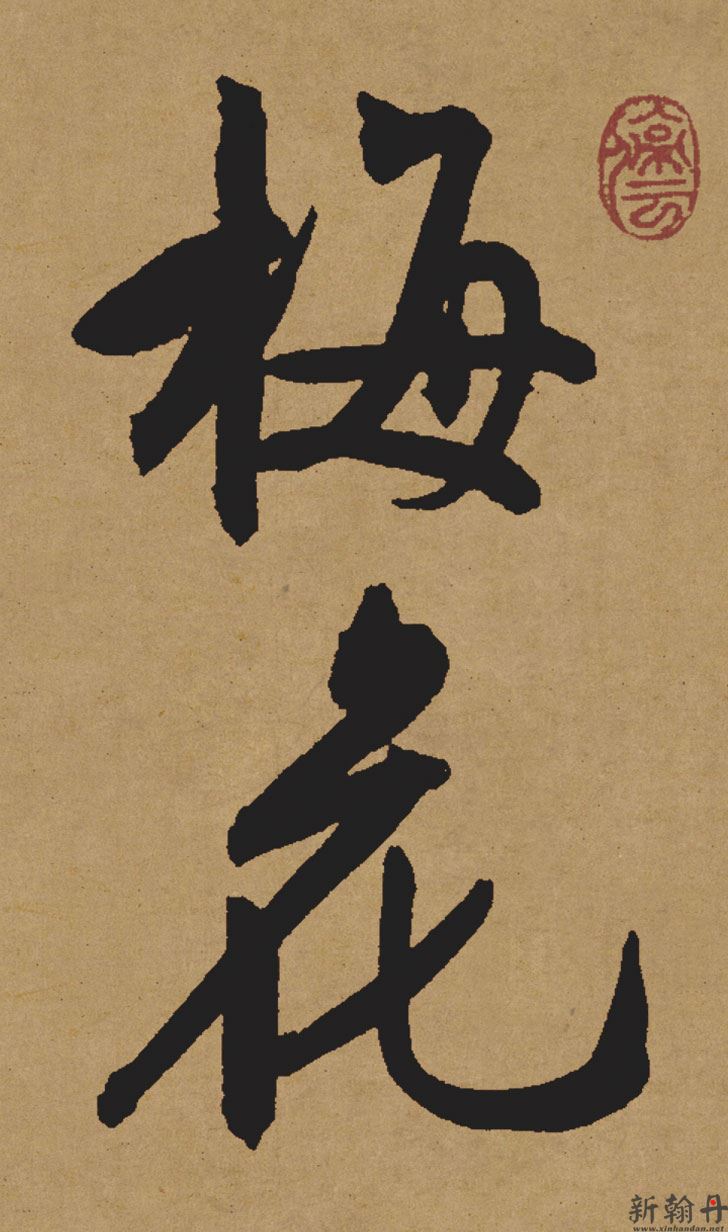 梅花
新翰丹
www.xinhandan.net